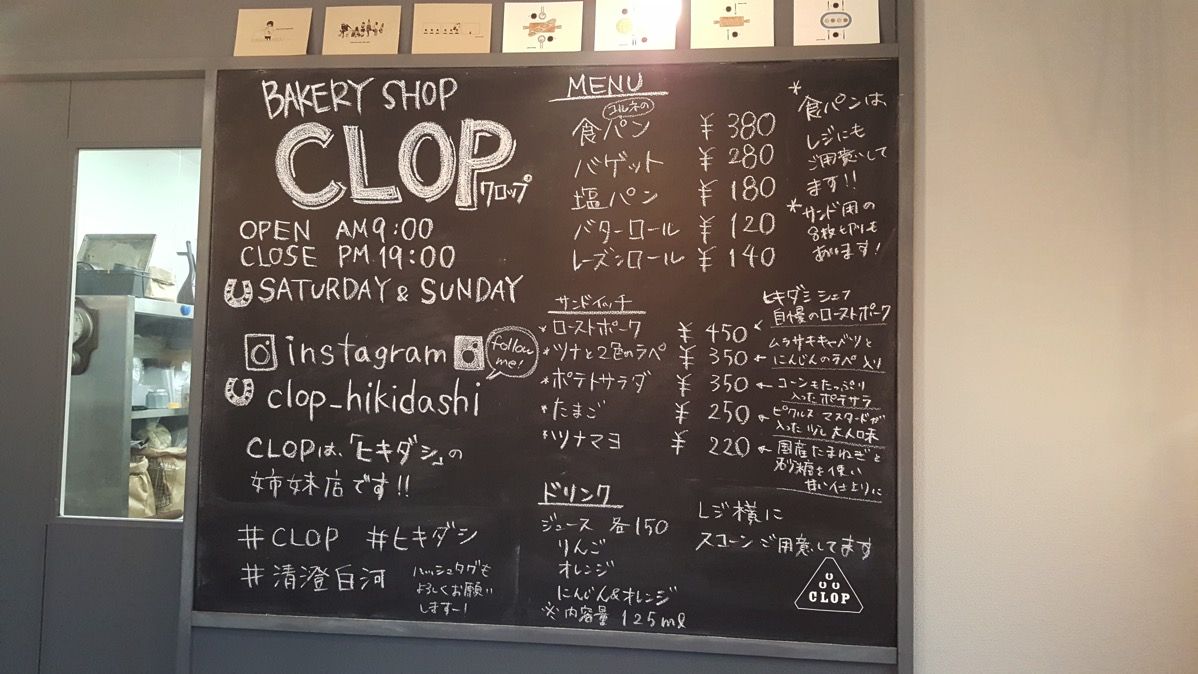 BAKERY SHOP
CLOP
クロップ
OPEN AM9:00
CLOSE PM 19:00
SATURDAY & SUNDAY
instagram
follow me!
clop_hikidashi
CLOPは、「ヒキダシ」の
姉妹店です!!
#CLOP #ヒキダシ
#清澄白河
ハッシュタグも
よろしくお願い
しますー!
MENU
コルネの
食パン ¥380
バゲット ¥280
塩パン ¥180
バターロール ¥120
レーズンロール ¥140
*食パンは
レジにも
ご用意して
ます!!
*サンド用の
8枚切りも
あります!
サンドイッチ
*ローストポーク ¥450
*ツナと2色のラペ ¥350
*ポテトサラダ ¥350
*たまご ¥250
*ツナマヨ ¥220
ヒキダシシェフ
自慢のローストポーク
ムラサキキャベツと
にんじんのラペ入り
コーンもたっぷり
入ったポテサラ
ピクルス マスタードが
入った少し大人味
国産たまねぎと
砂糖を使い
甘い仕上りに
ドリンク
ジュース 各150
りんご
オレンジ
にんじん&オレンジ
※内容量 125ml
レジ横に
スコーンご用意してます
CLOP